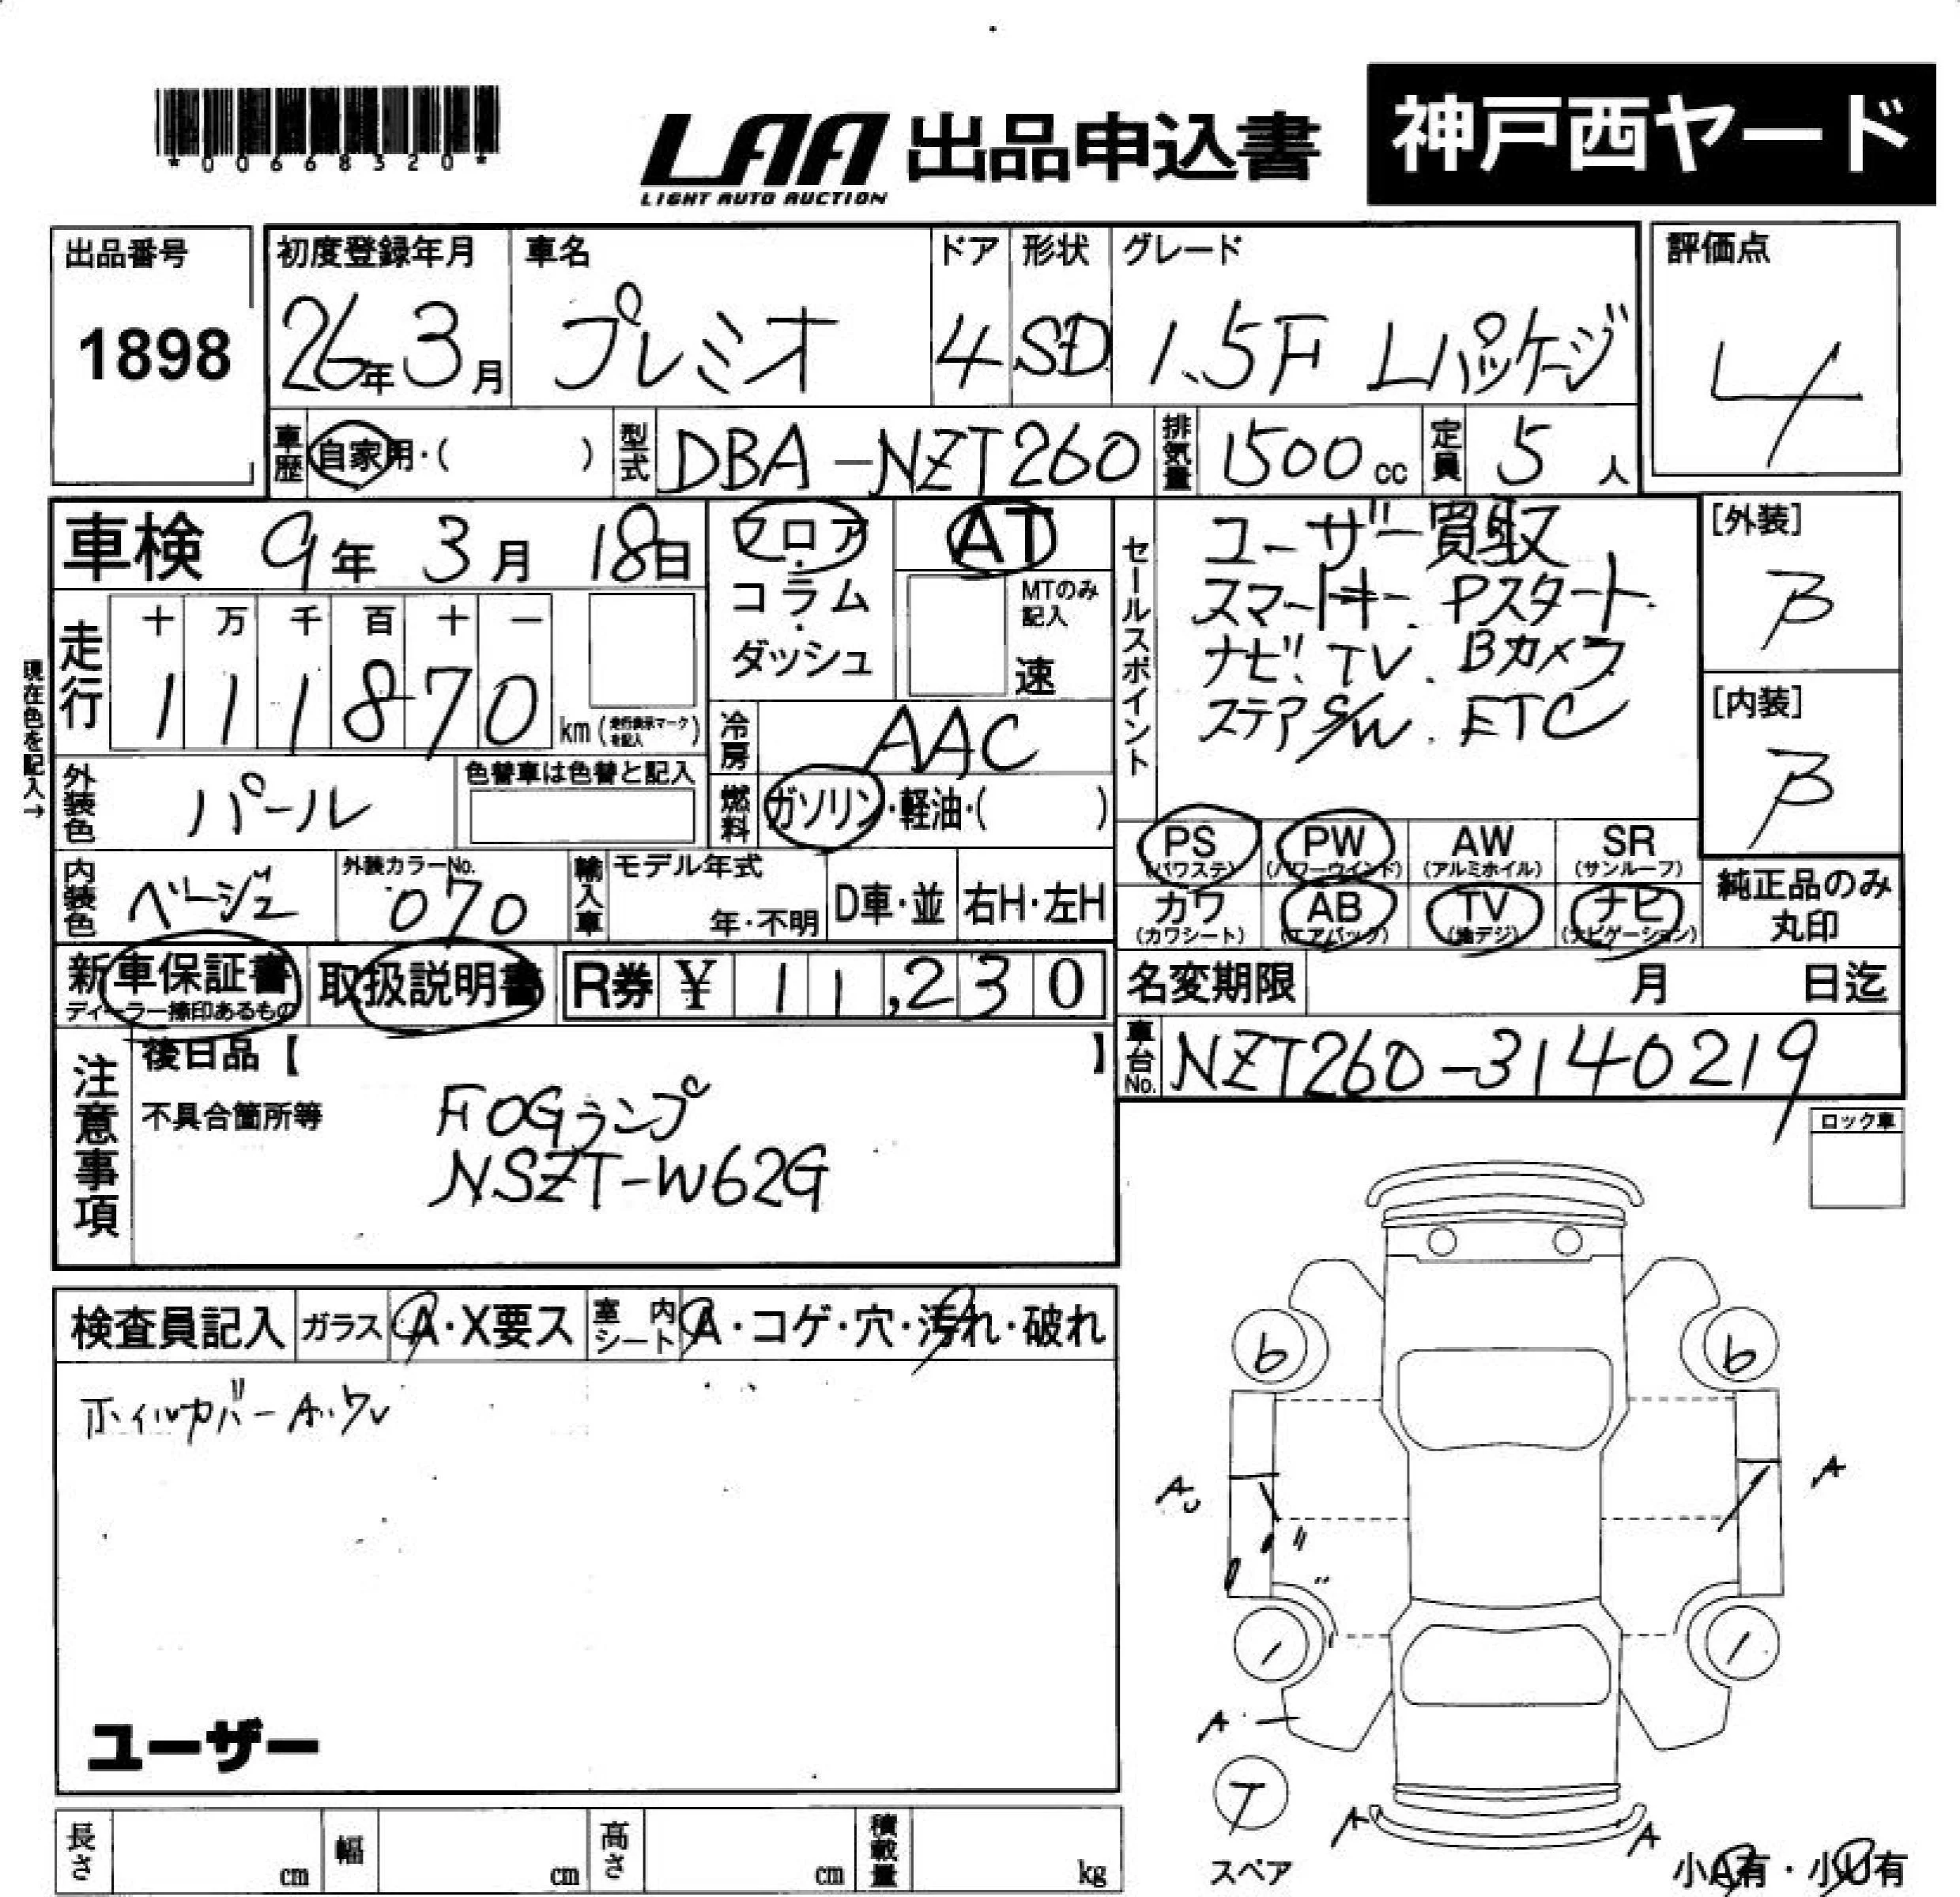 *00668320*
LAA 出品申込書 神戸西ヤード
LIGHT AUTO AUCTION
出品番号 初度登録年月 車名 ドア 形状 グレード 評価点
1898 26年3月 プレミオ 4 SD 1.5F Lパッケージ 4
車歴 自家用・( ) 型式 DBA-NZT260 排気量 1500cc 定員 5人
車検 9年 3月 18日 フロア・コラム・ダッシュ AT
MTのみ記入 速
セールスポイント
ユーザー買取
スマートキー. Pスタート.
ナビ. TV. Bカメラ
ステアS/W. ETC
[外装]
B
[内装]
B
現在色を記入→
走行 十 万 千 百 十 一
111870 km (走行表示マークを記入)
冷房 AAC
外装色 パール 色替車は色替と記入
燃料 ガソリン・軽油・( )
PS (パワステ) PW (パワーウインド) AW (アルミホイル) SR (サンルーフ)
カワ (カワシート) AB (エアバック) TV (地デジ) ナビ (ナビゲーション)
純正品のみ丸印
内装色 ベージュ 外装カラーNo. 070 輸入車 モデル年式 年・不明 D車・並 右H・左H
新車保証書 取扱説明書 R券 ¥ 11,230
ディーラー捺印あるもの
名変期限 月 日迄
車台No. NZT260-3140219
注意事項
後日品【 】
不具合箇所等
FOGランプ
NSZT-W62G
ロック車
検査員記入 ガラス A・X要ス 室内シート A・コゲ・穴・汚れ・破れ
ホイルカバー
ユーザー
6 6
A A
A
T
A A
スペア
小A有・小U有
長さ cm 幅 cm 高さ cm 積載量 kg